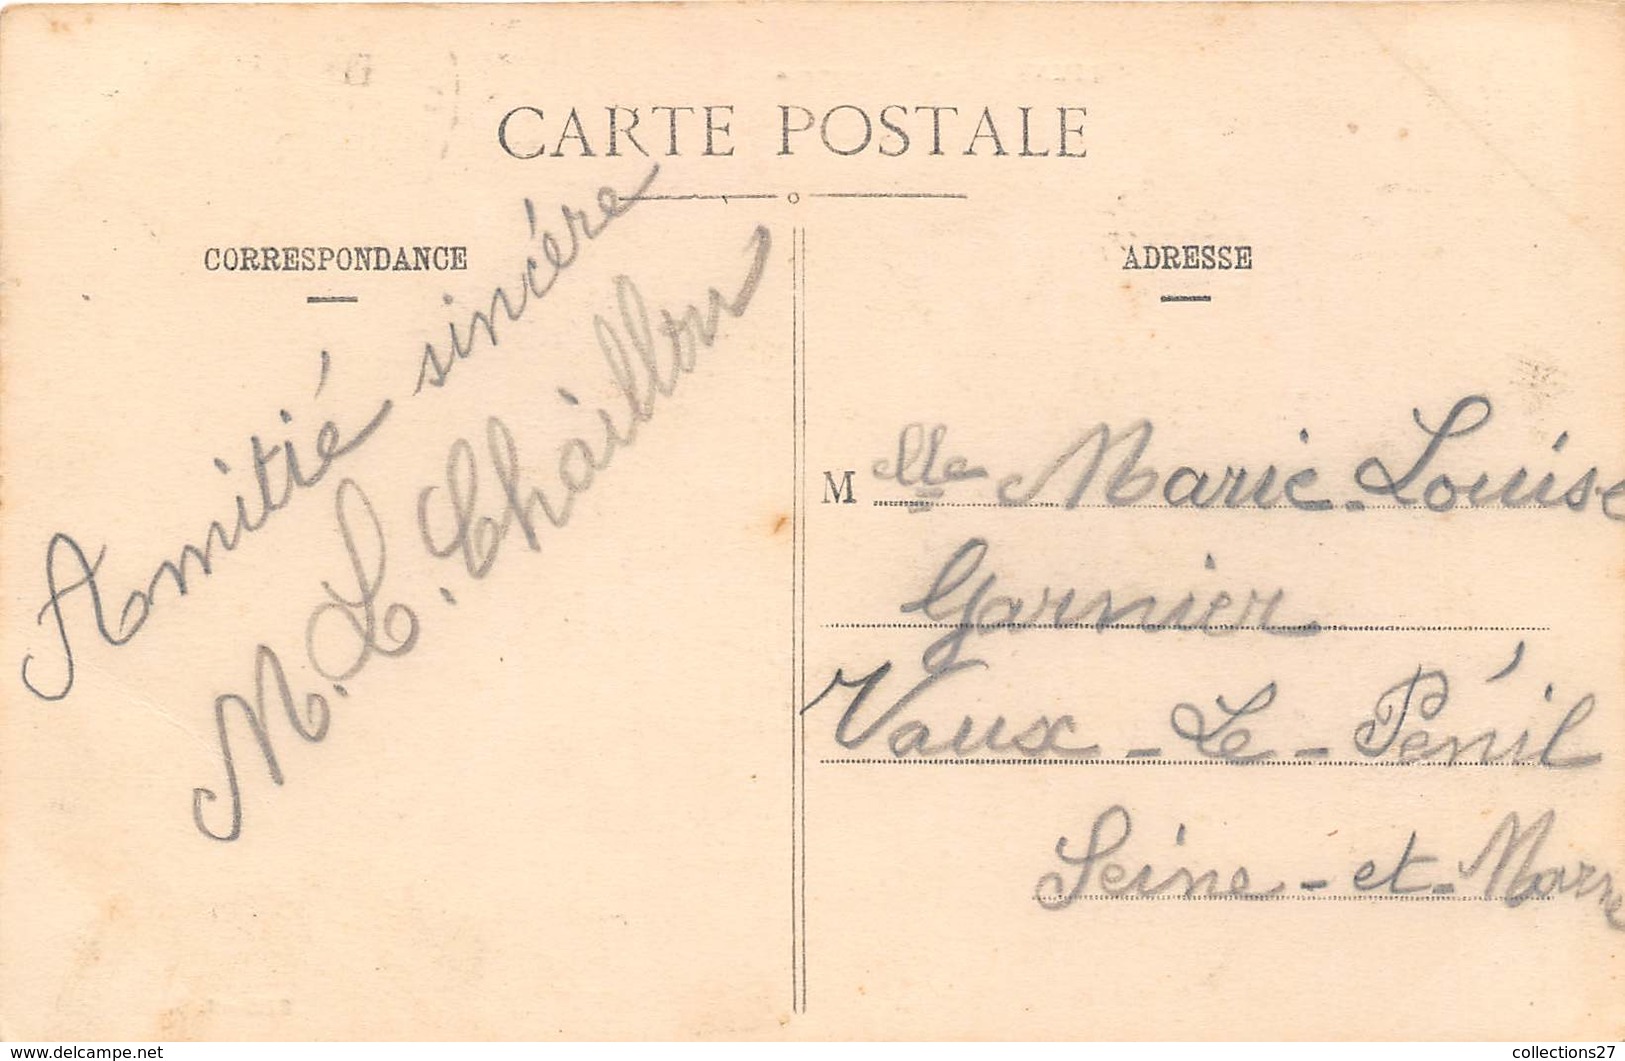 CARTE POSTALE
CORRESPONDANCE
Amitié sincére
M. L. Chaillou
ADRESSE
Melle Marie-Louise
Garnier
Vaux-Le-Pénil
Seine-et-Marne
www.delcampe.net
collections27